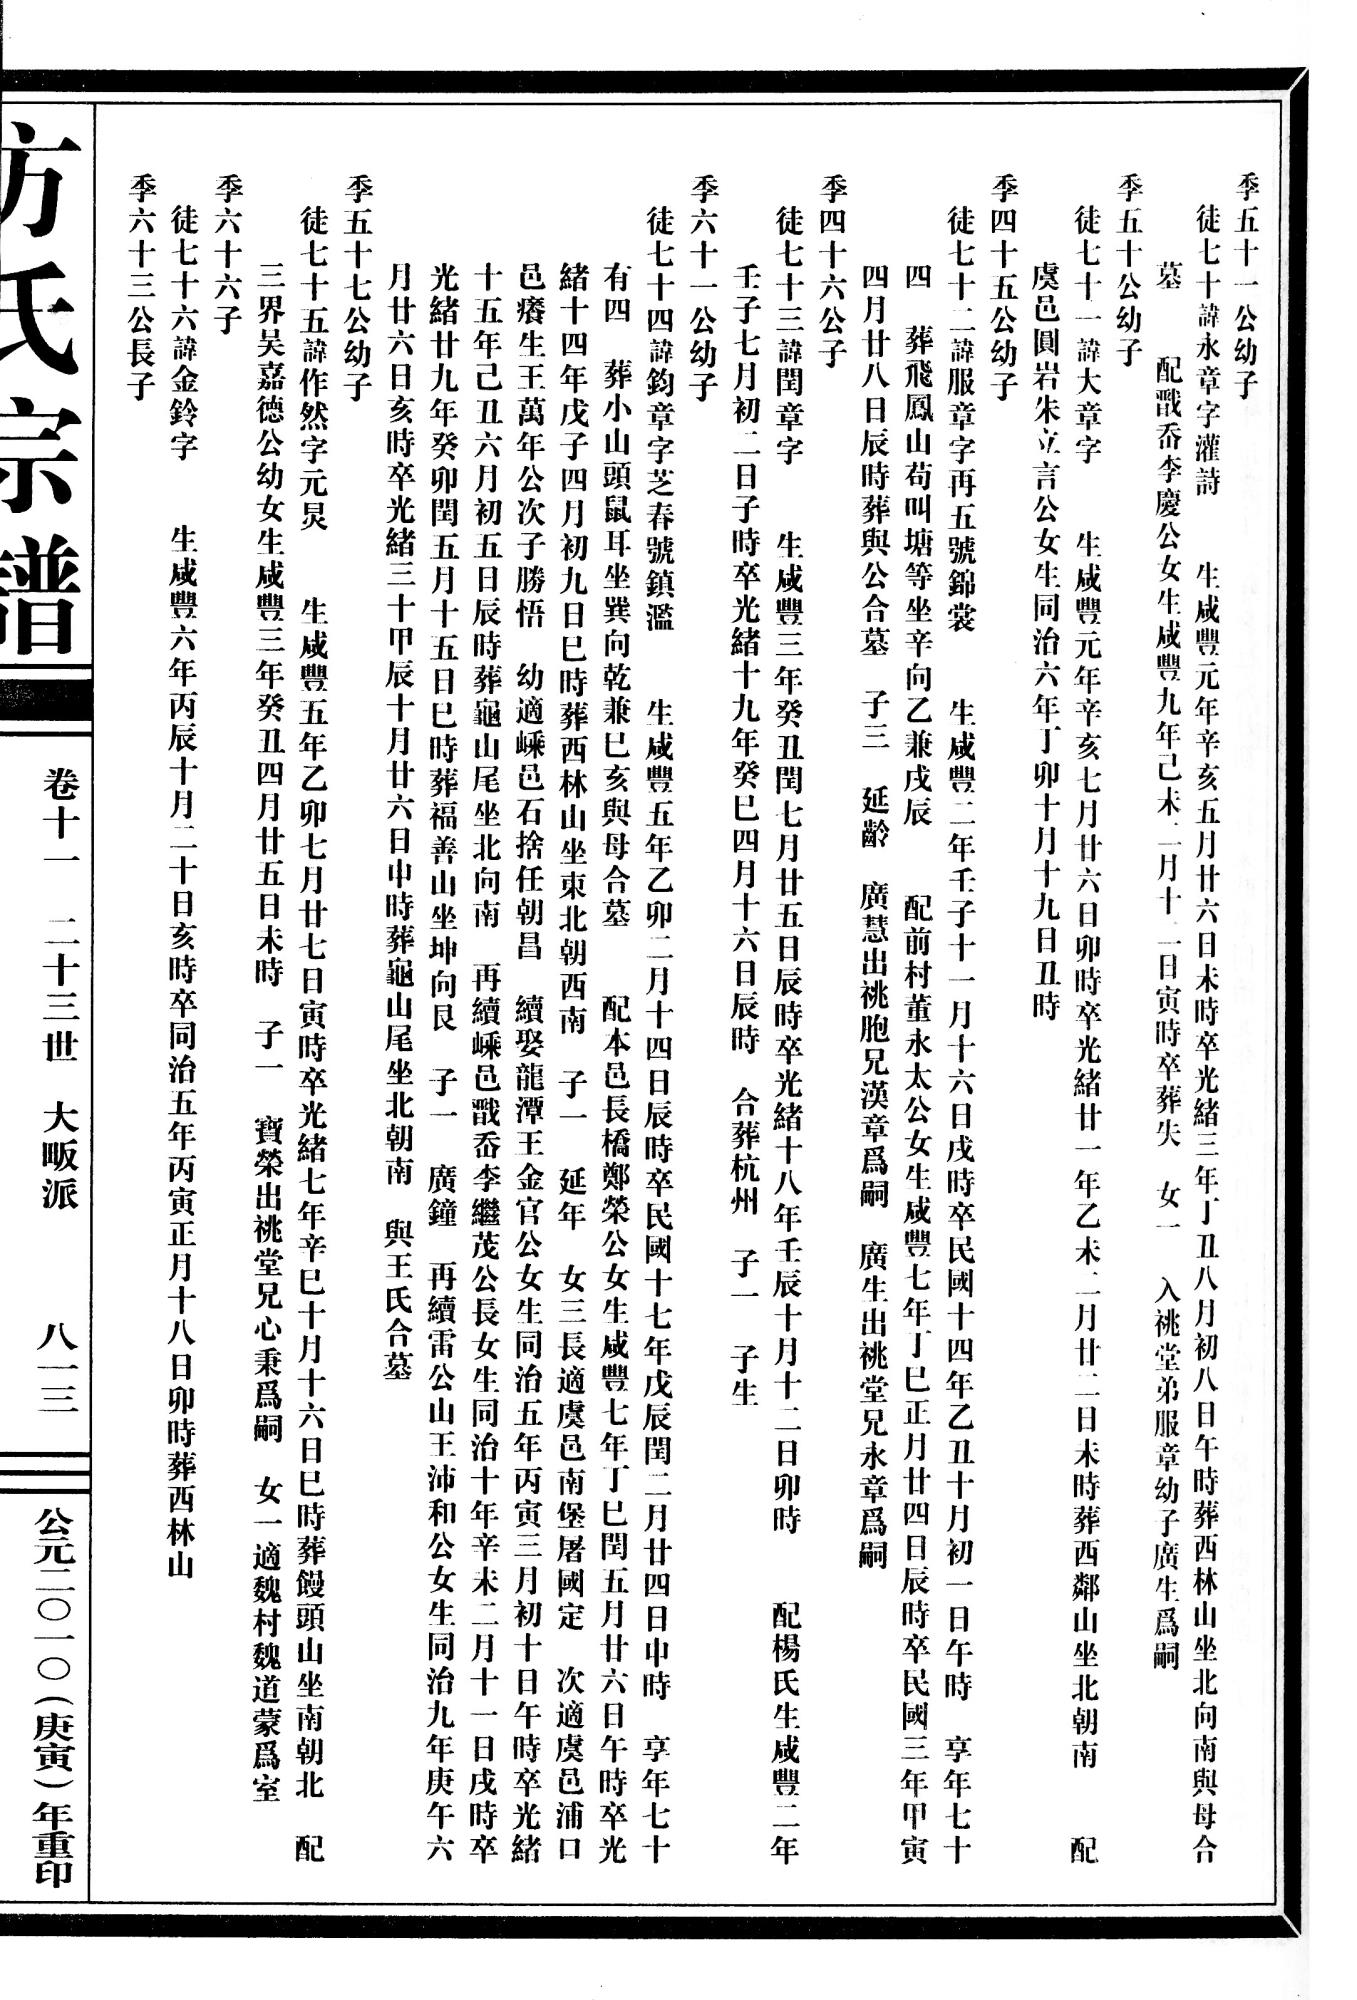 季五十一公幼子
徒七十諱永章字灌詩　生咸豐元年辛亥五月廿六日未時卒光緒三年丁丑八月初八日午時葬西林山坐北向南與母合
墓　配戬岙李慶公女生咸豐九年己未二月十二日寅時卒葬失　女一　入祧堂弟服章幼子廣生爲嗣
季五十公幼子
徒七十一諱大章字　生咸豐元年辛亥七月廿六日卯時卒光緒廿一年乙未二月廿二日未時葬西鄰山坐北朝南　配
虞邑圓岩朱立言公女生同治六年丁卯十月十九日丑時
季四十五公幼子
徒七十二諱服章字再五號錦裳　生咸豐二年壬子十一月十六日戌時卒民國十四年乙丑十月初一日午時　享年七十
四　葬飛鳳山荀叫塘等坐辛向乙兼戌辰　配前村董永太公女生咸豐七年丁巳正月廿四日辰時卒民國三年甲寅
四月廿八日辰時葬與公合墓　子三　延齡　廣慧出祧胞兄漢章爲嗣　廣生出祧堂兄永章爲嗣
季四十六公子
徒七十三諱閏章字　生咸豐三年癸丑閏七月廿五日辰時卒光緒十八年壬辰十月十二日卯時　配楊氏生咸豐二年
壬子七月初二日子時卒光緒十九年癸巳四月十六日辰時　合葬杭州　子一　子生
季六十一公幼子
徒七十四諱鈞章字芝春號鎮濫　生咸豐五年乙卯二月十四日辰時卒民國十七年戊辰閏二月廿四日申時　享年七十
有四　葬小山頭鼠耳坐巽向乾兼巳亥與母合墓　配本邑長橋鄭榮公女生咸豐七年丁巳閏五月廿六日午時卒光
緒十四年戊子四月初九日巳時葬西林山坐東北朝西南　子一　延年　女三長適虞邑南堡屠國定　次適虞邑浦口
邑癢生王萬年公次子勝悟　幼適嵊邑石捨任朝昌　續娶龍潭王金官公女生同治五年丙寅三月初十日午時卒光緒
十五年己丑六月初五日辰時葬龜山尾坐北向南　再續嵊邑戬岙李繼茂公長女生同治十年辛未二月十一日戌時卒
光緒廿九年癸卯閏五月十五日巳時葬福善山坐坤向艮　子一　廣鐘　再續雷公山王沛和公女生同治九年庚午六
月廿六日亥時卒光緒三十甲辰十月廿六日申時葬龜山尾坐北朝南　與王氏合墓
季五十七公幼子
徒七十五諱作然字元炅　生咸豐五年乙卯七月廿七日寅時卒光緒七年辛巳十月十六日巳時葬饅頭山坐南朝北　配
三界吴嘉德公幼女生咸豐三年癸丑四月廿五日未時　子一　寶榮出祧堂兄心秉爲嗣　女一適魏村魏道蒙爲室
季六十六子
徒七十六諱金鈴字　生咸豐六年丙辰十月二十日亥時卒同治五年丙寅正月十八日卯時葬西林山
季六十三公長子
方氏宗譜
卷十一　二十三世　大畈派　八一三
公元二〇一〇（庚寅）年重印